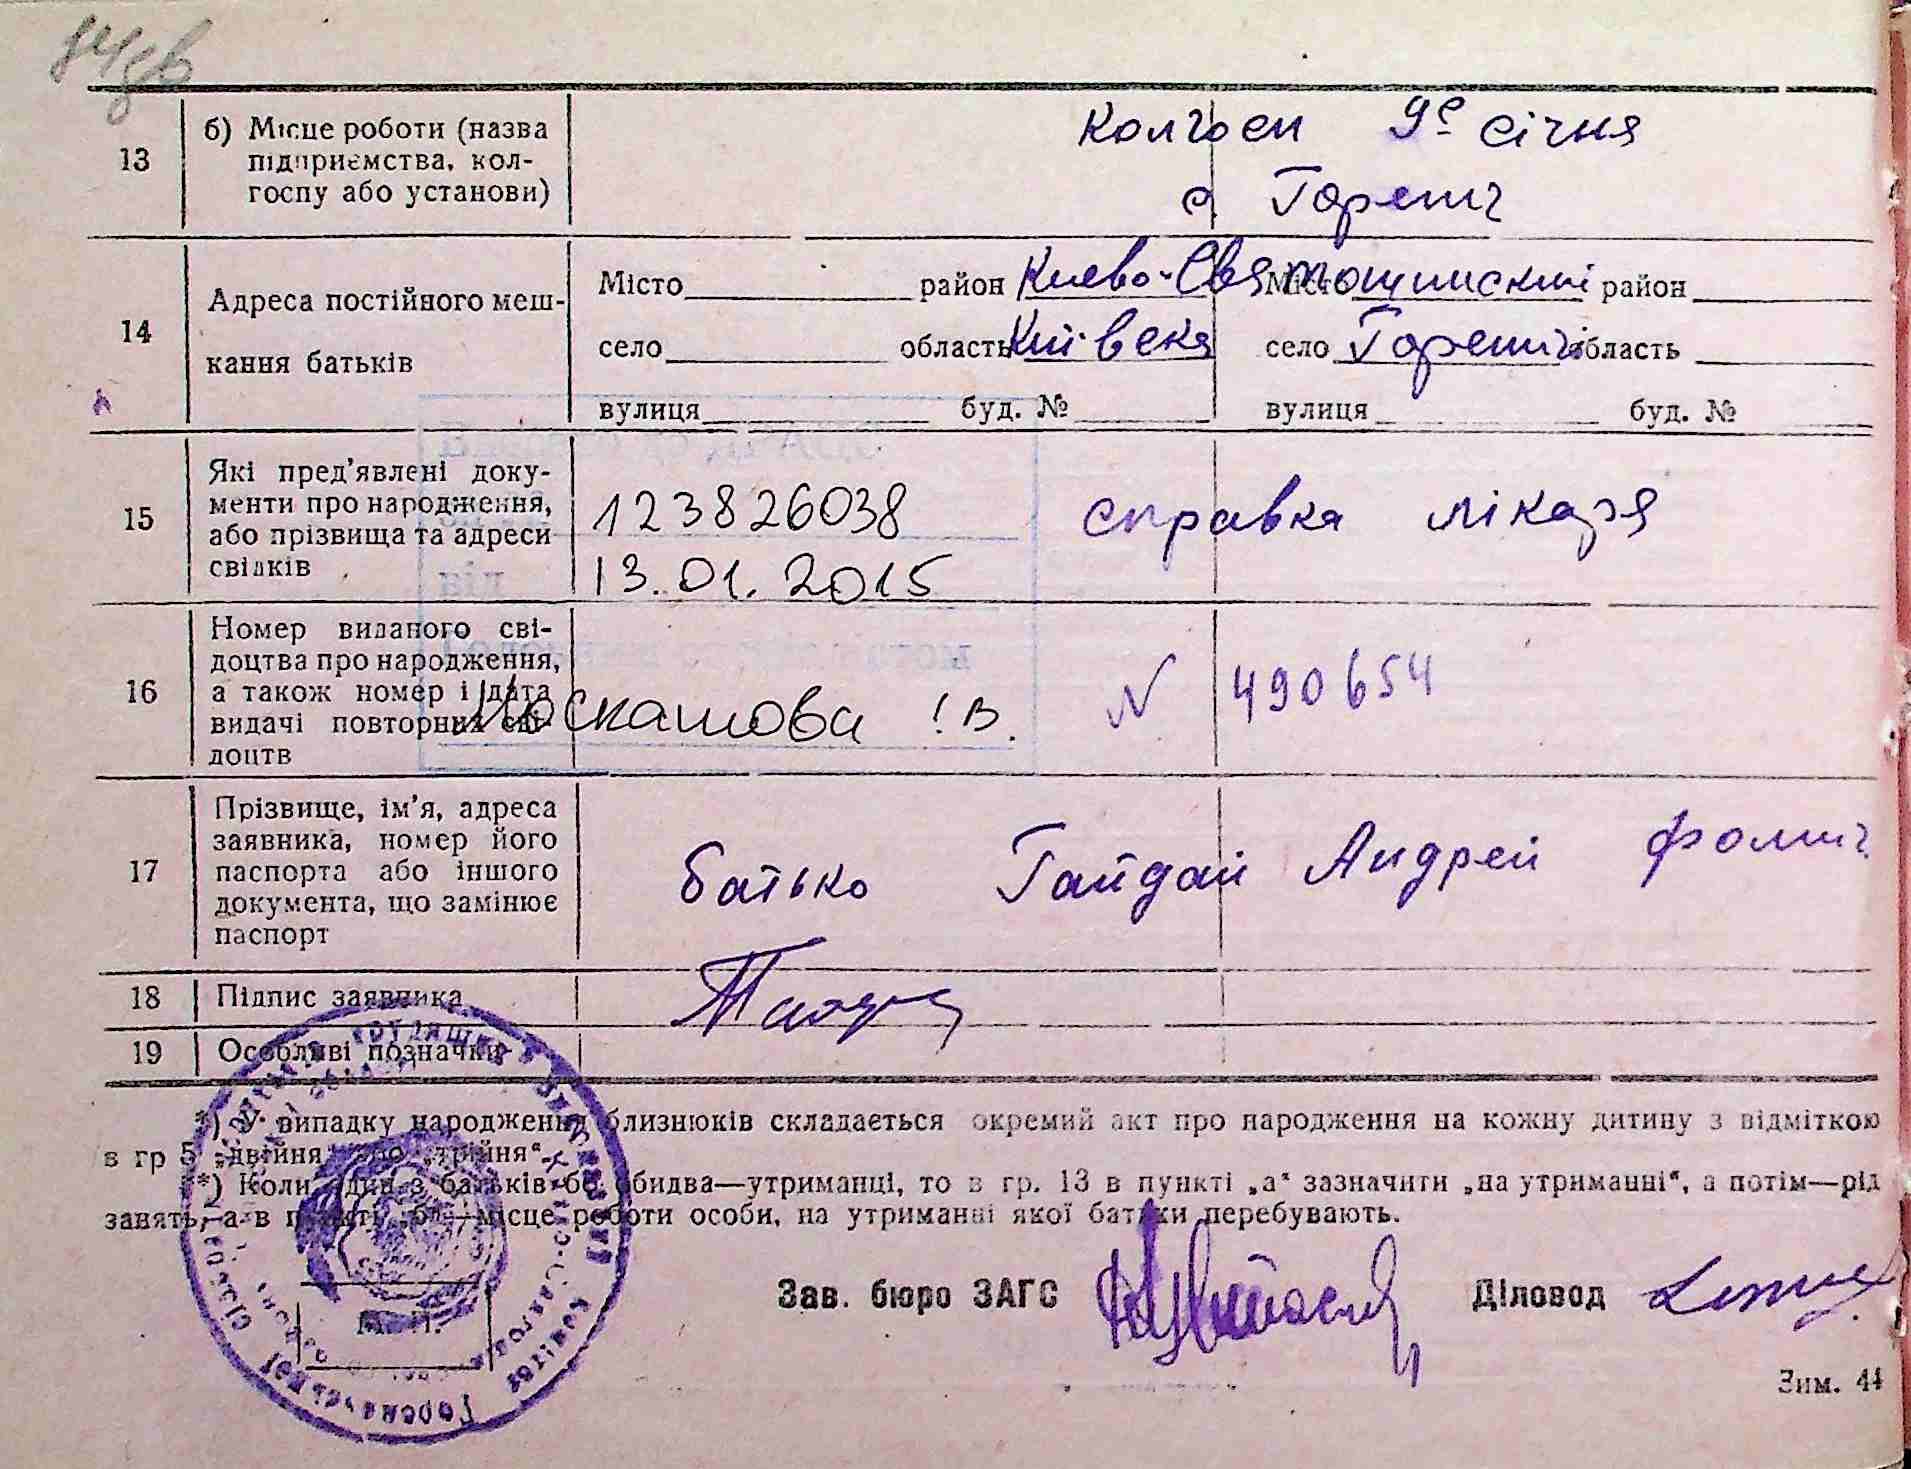 13 б) Місце роботи (назва підприємства, кол-
госпу або установи)
Колгосп 9е січня
с. Горенич
14 Адреса постійного меш-
кання батьків
Місто район Киево-Святошинский Місто район
село область Київська село Горенич область
вулиця буд. № вулиця буд. №
15 Які пред'явлені доку-
менти про народження,
або прізвища та адреси
свідків
123826038
13.01.2015
справка лікаря
16 Номер виданого сві-
доцтва про народження,
а також номер і дата
видачі повторних сві-
доцтв
Москашова І.В.
N 490654
17 Прізвище, ім'я, адреса
заявника, номер його
паспорта або іншого
документа, що замінює
паспорт
батько Гайдай Андрей Фомич
18 Підпис заявника
19 Особливі позначки
*) У випадку народження близнюків складається окремий акт про народження на кожну дитину з відміткою
в гр 5 „двійня“ або „трійня“.
*) Коли один з батьків або обидва—утриманці, то в гр. 13 в пункті „а“ зазначити „на утриманні“, а потім—рід
занять, а в пункті „б“—місце роботи особи, на утриманні якої батьки перебувають.
М. П.
Зав. бюро ЗАГС Діловод
Зим. 44